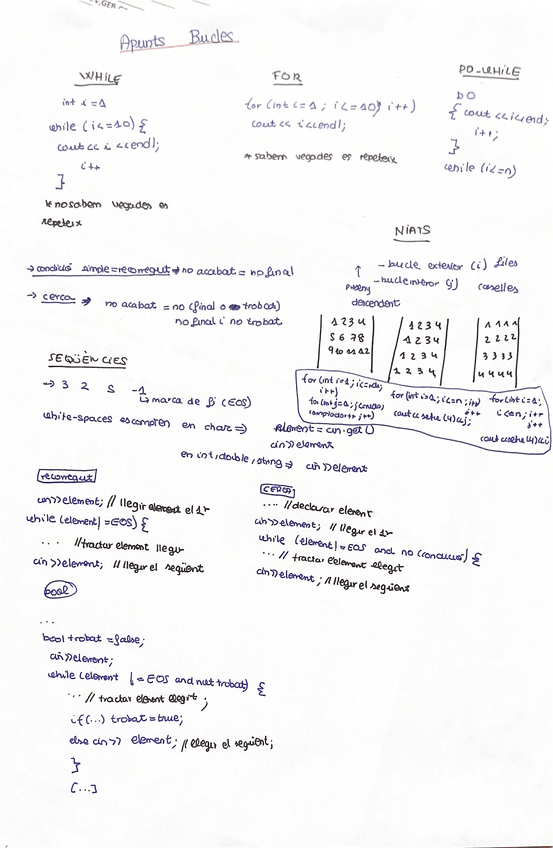 Apunts Bucles
WHILE
int i=1
while (i<=10) {
cout << i <<endl;
i++
}
* no sabem vegades es
repeteix
FOR
for (int i=1; i<=10; i++)
cout << i<<endl;
* sabem vegades es repeteix
DO-WHILE
DO
{ cout <<i<<endl;
i++;
}
while (i<=n)
NIATS
- bucle exterior (i) files
- bucle interior (j) caselles
descendent
1 2 3 4
5 6 7 8
9 10 11 12
1 2 3 4
1 2 3 4
1 2 3 4
1 2 3 4
1 1 1 1
2 2 2 2
3 3 3 3
4 4 4 4
for (int i=1; i<=n;
i++)
for (int i=1; i<=n; i++)
i++
cout<<setw(4)<<j;
for (int i=1;
i<=n; i++
i++
cout<<setw(4)<<i
→ condició simple = recorregut → no acabat = no final
→ cerca → no acabat = no (final o trobat)
no final i no trobat
SEQÜÈNCIES
→ 3 2 5 -1
↳ marca de fi (EOS)
white-spaces es compten en char => element = cin.get()
cin>>element
en int, double, string => cin>>element
recorregut
cin>>element; // llegir el 1r
while (element != EOS) {
... //tractar element llegit
cin>>element; // llegir el següent
bool
...
bool trobat = false;
cin>>element;
while (element != EOS and not trobat) {
... // tractar element llegit ;
if (...) trobat = true;
else cin>> element; // llegir el següent;
}
[...]
CERCA
.... // declarar element
cin>>element; // llegir el 1r
while (element != EOS and no (condició) {
... // tractar element llegit
cin>>element; // llegir el següent